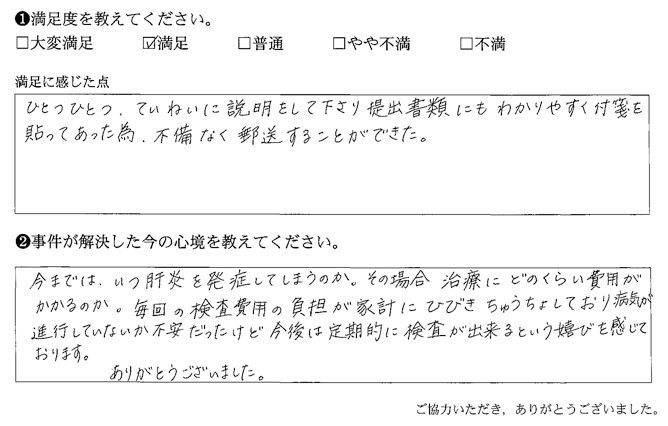 ❶満足度を教えてください。
□大変満足 ☑満足 □普通 □やや不満 □不満
満足に感じた点
ひとつひとつ、ていねいに説明をして下さり提出書類にもわかりやすく付箋を
貼ってあった為、不備なく郵送することができた。
❷事件が解決した今の心境を教えてください。
今までは、いつ肝炎を発症してしまうのか。その場合治療にどのくらい費用が
かかるのか。毎回の検査費用の負担が家計にひびきちゅうちょしており病気が
進行していないか不安だったけど今後は定期的に検査が出来るという嬉びを感じて
おります。
ありがとうございました。
ご協力いただき，ありがとうございました。